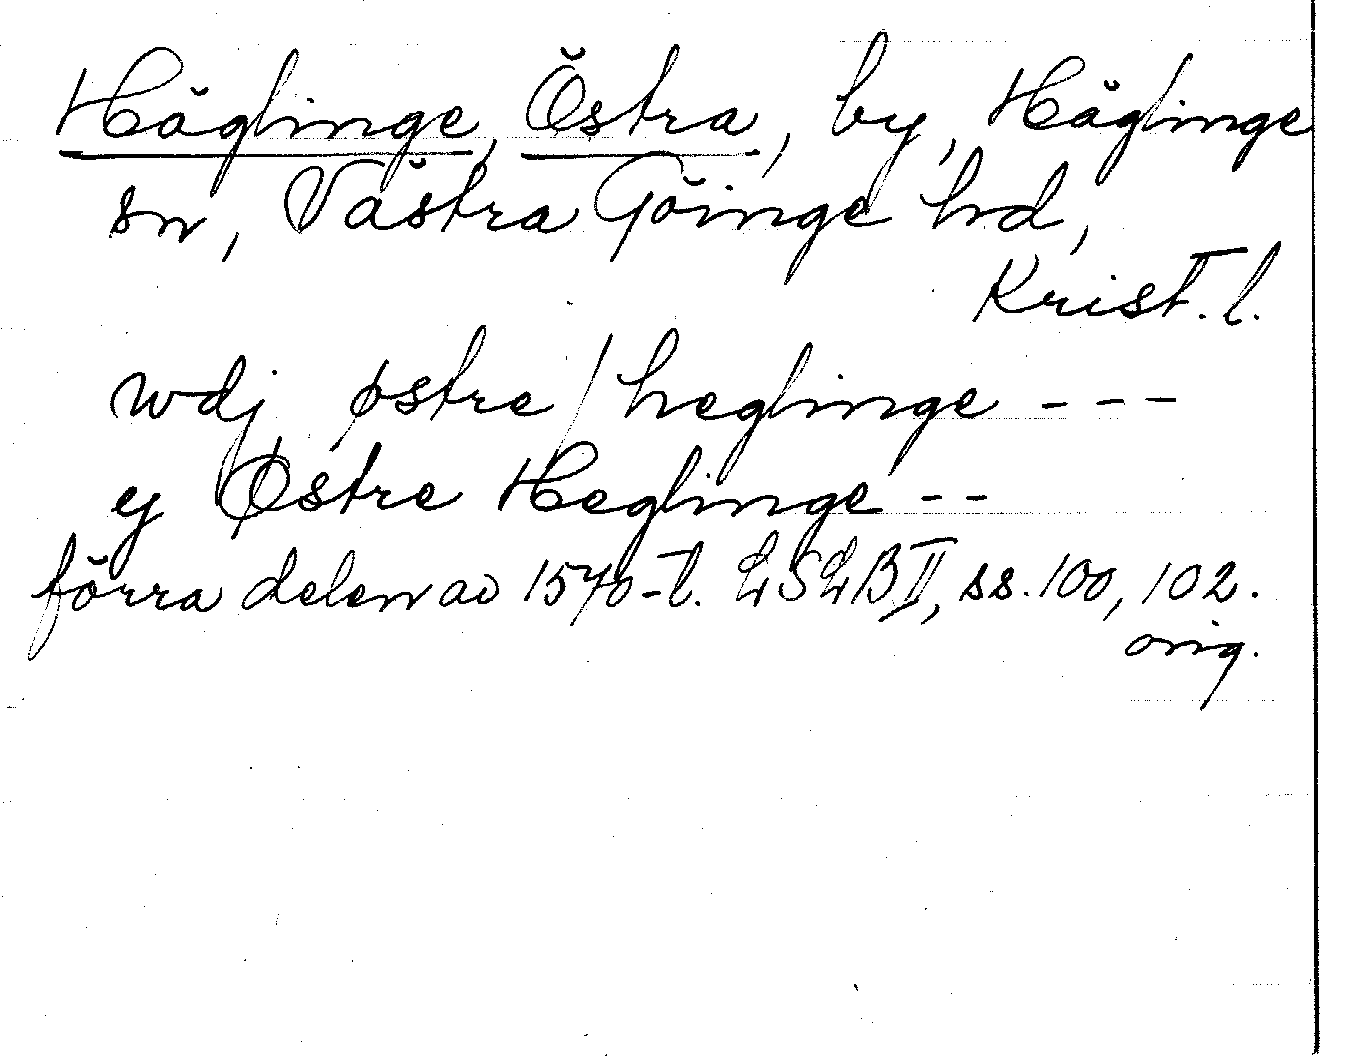 Häglinge, Östra, by, Häglinge
sn, Västra Göinge hd,
Krist. l.
wdj østre / heglinge - - -
ej Østre Heglinge - -
förra delen av 1570-t. LSLB II, ss. 100, 102.
orig.